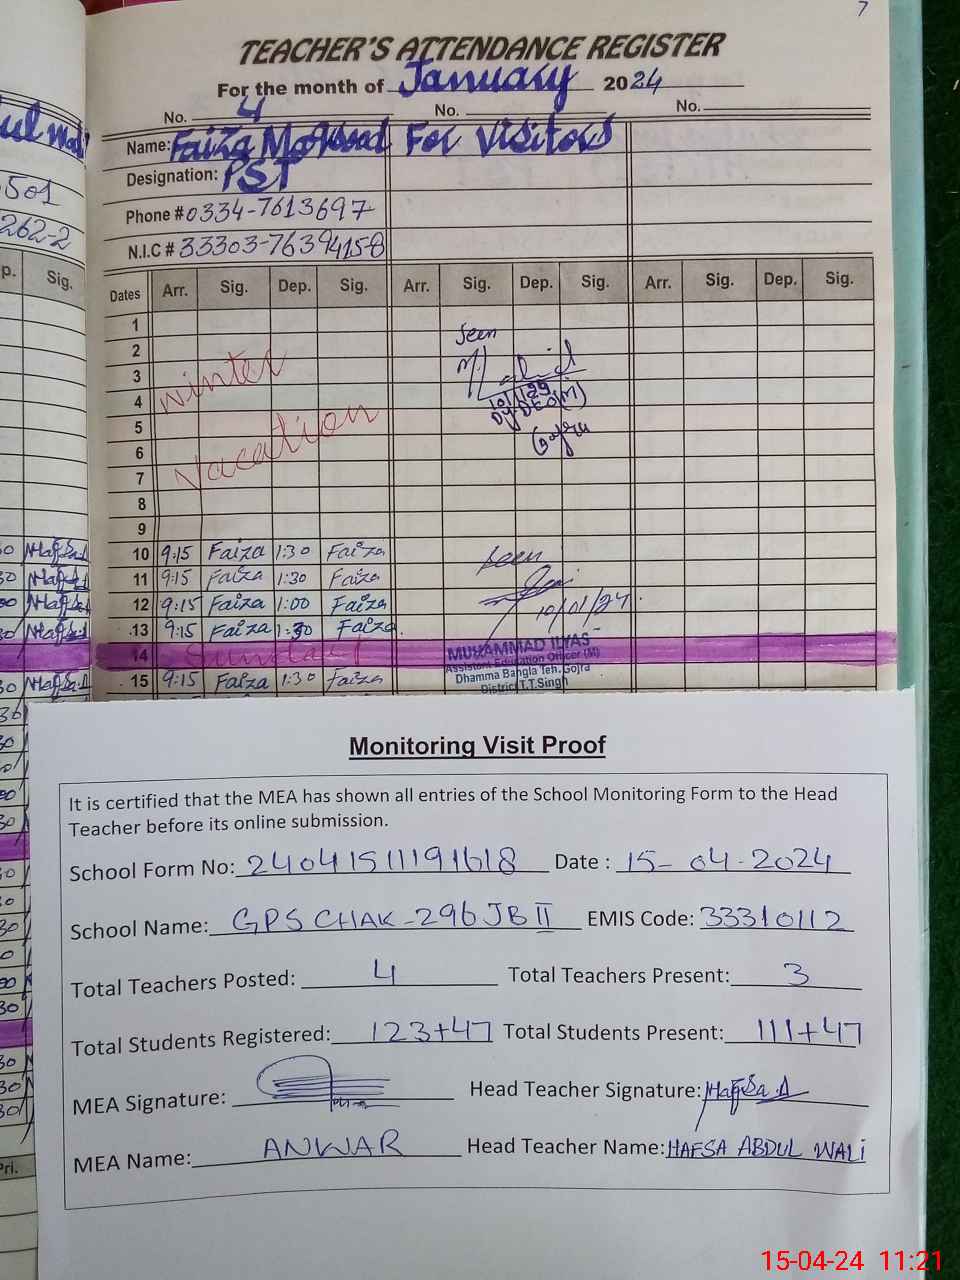 7
TEACHER'S ATTENDANCE REGISTER
For the month of January 2024
No. 4 No. No.
Name: Faiza For Visitors
Designation: PST
Phone # 0334-7613697
N.I.C # 33303-76394158
501
262-2
p. Sig.
Dates Arr. Sig. Dep. Sig. Arr. Sig. Dep. Sig. Arr. Sig. Dep. Sig.
1
Seen
2
3
winter
4
Dy-DEO(M)
5
Gojra
6
Vacation
7
8
9
10 9:15 Faiza 1:30 Faiza
Seen
11 9:15 Faiza 1:30 Faiza
12 9:15 Faiza 1:00 Faiza
10/01/24
13 9:15 Faiza 1:30 Faiza
14 Sunday
MUHAMMAD ILYAS
Assistant Education Officer (M)
Dhamma Bangla Teh. Gojra
District T.T.Singh
15 9:15 Faiza 1:30 Faiza
Monitoring Visit Proof
It is certified that the MEA has shown all entries of the School Monitoring Form to the Head
Teacher before its online submission.
School Form No: 24041511191618 Date : 15-04-2024
School Name: GPS CHAK-296 JB II EMIS Code: 33310112
Total Teachers Posted: 4 Total Teachers Present: 3
Total Students Registered: 123+47 Total Students Present: 111+47
MEA Signature: Head Teacher Signature: Hafsa A
MEA Name: ANWAR Head Teacher Name: HAFSA ABDUL WALI
Pri.
15-04-24 11:21